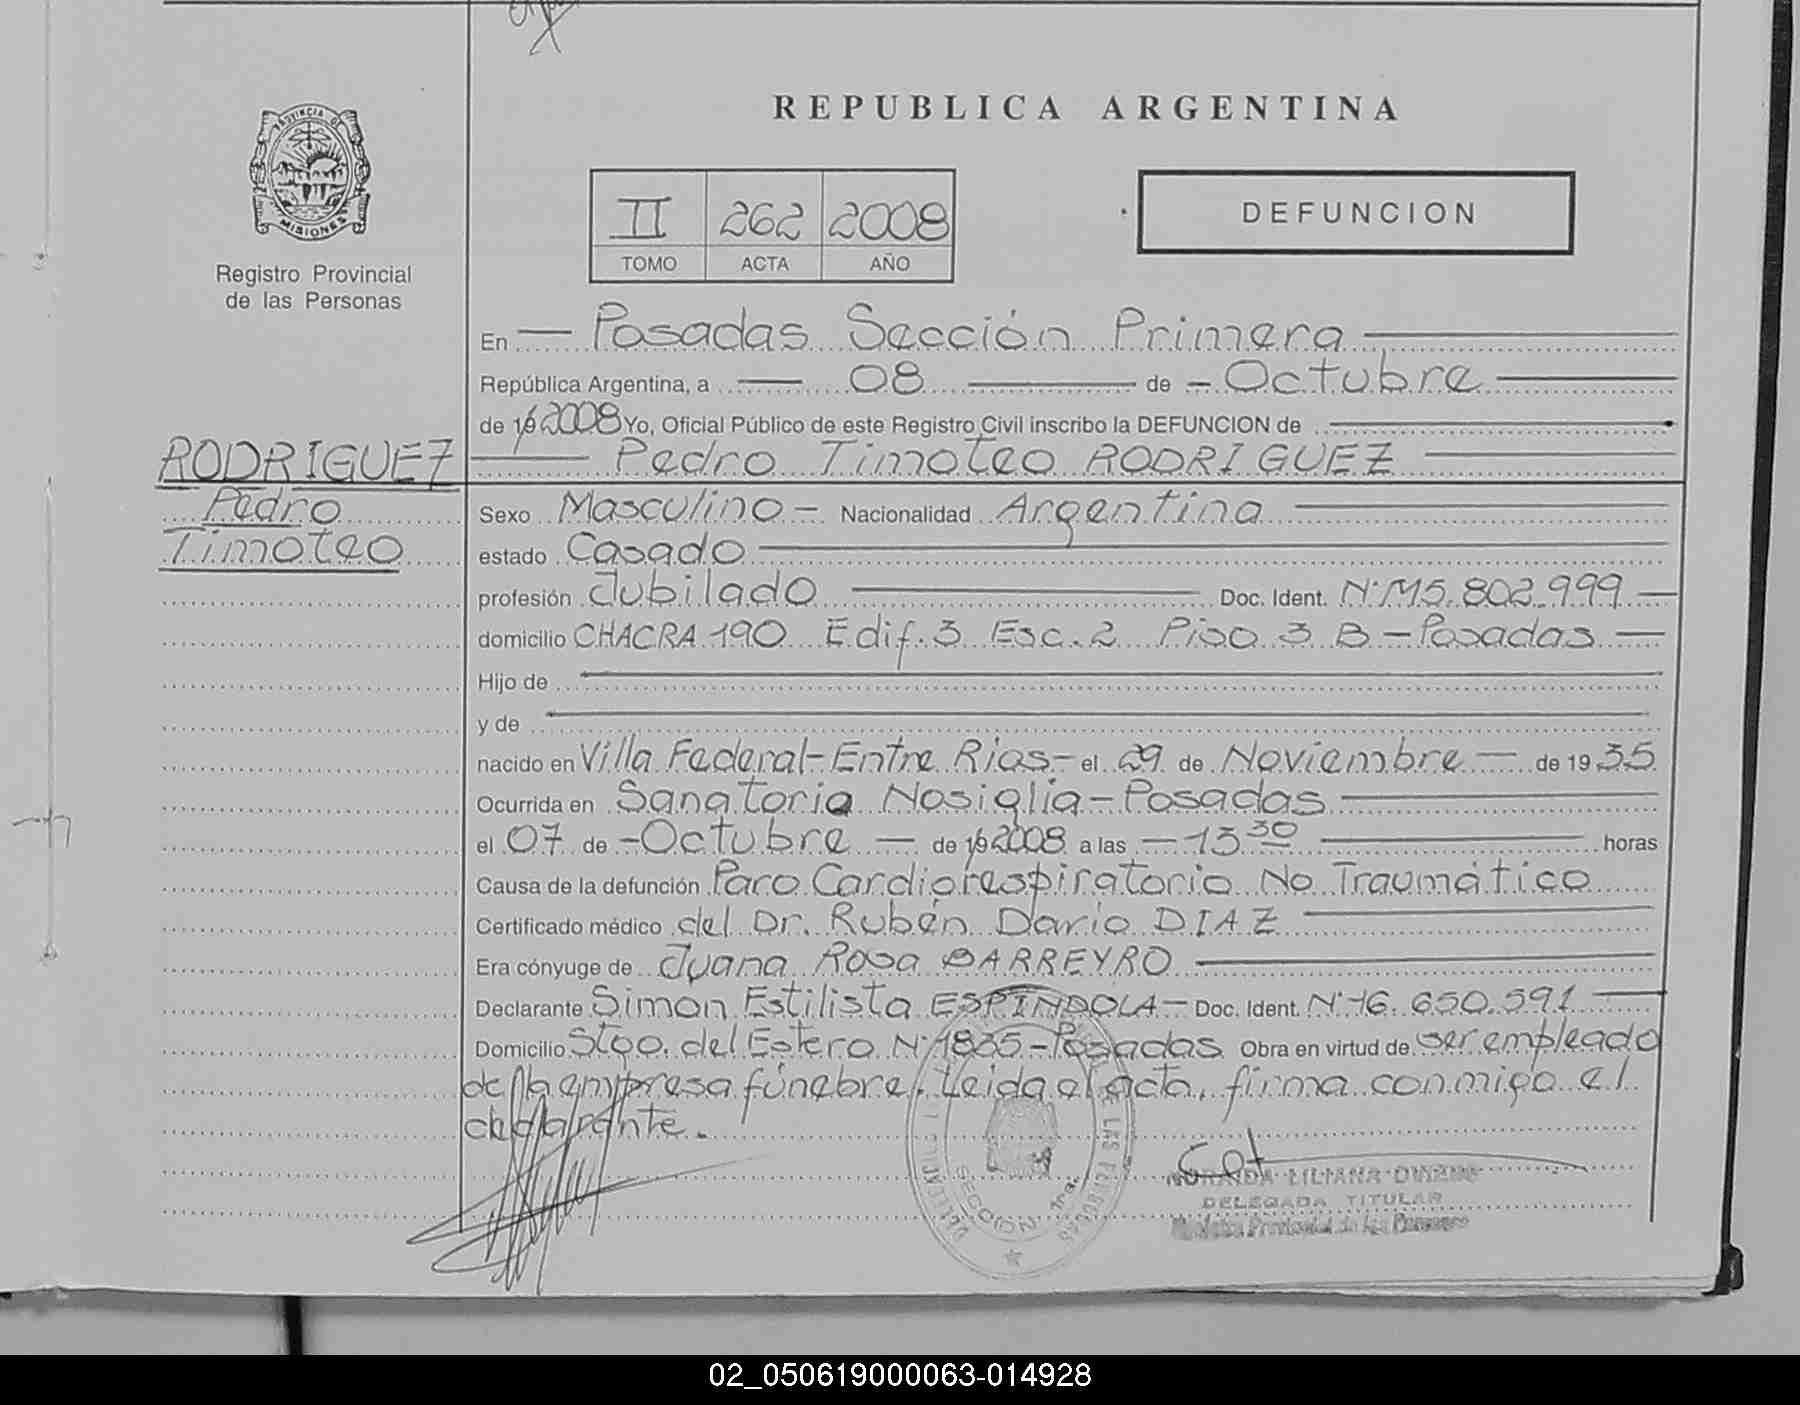 REPUBLICA ARGENTINA
PROVINCIA DE
MISIONES
Registro Provincial
de las Personas
II 262 2008
TOMO ACTA AÑO
DEFUNCION
En Posadas Sección Primera
República Argentina, a 08 de Octubre
de 19 2008 Yo, Oficial Público de este Registro Civil inscribo la DEFUNCION de
Pedro Timoteo RODRIGUEZ
RODRIGUEZ
Pedro
Timoteo
Sexo Masculino - Nacionalidad Argentina
estado Casado
profesión Jubilado Doc. Ident. N° M5.802.999
domicilio CHACRA 190 Edif. 3 Esc. 2 Piso 3 B - Posadas
Hijo de
y de
nacido en Villa Federal - Entre Rios - el 29 de Noviembre de 1935
Ocurrida en Sanatorio Nosiglia - Posadas
el 07 de Octubre de 19 2008 a las 13 30 horas
Causa de la defunción Paro Cardiorespiratorio No Traumático
Certificado médico del Dr. Rubén Dario DIAZ
Era cónyuge de Juana Rosa BARREYRO
Declarante Simon Estilista ESPINDOLA - Doc. Ident. N° 16.650.591
Domicilio Stgo. del Estero N° 1835 - Posadas Obra en virtud de ser empleado
de la empresa fúnebre. Leida el acta, firma conmigo el
declarante.
DE LAS PERSONAS
SECCION 1ra.
LILIANA
DELEGADA TITULAR
Registro Provincial de las Personas
02_050619000063-014928